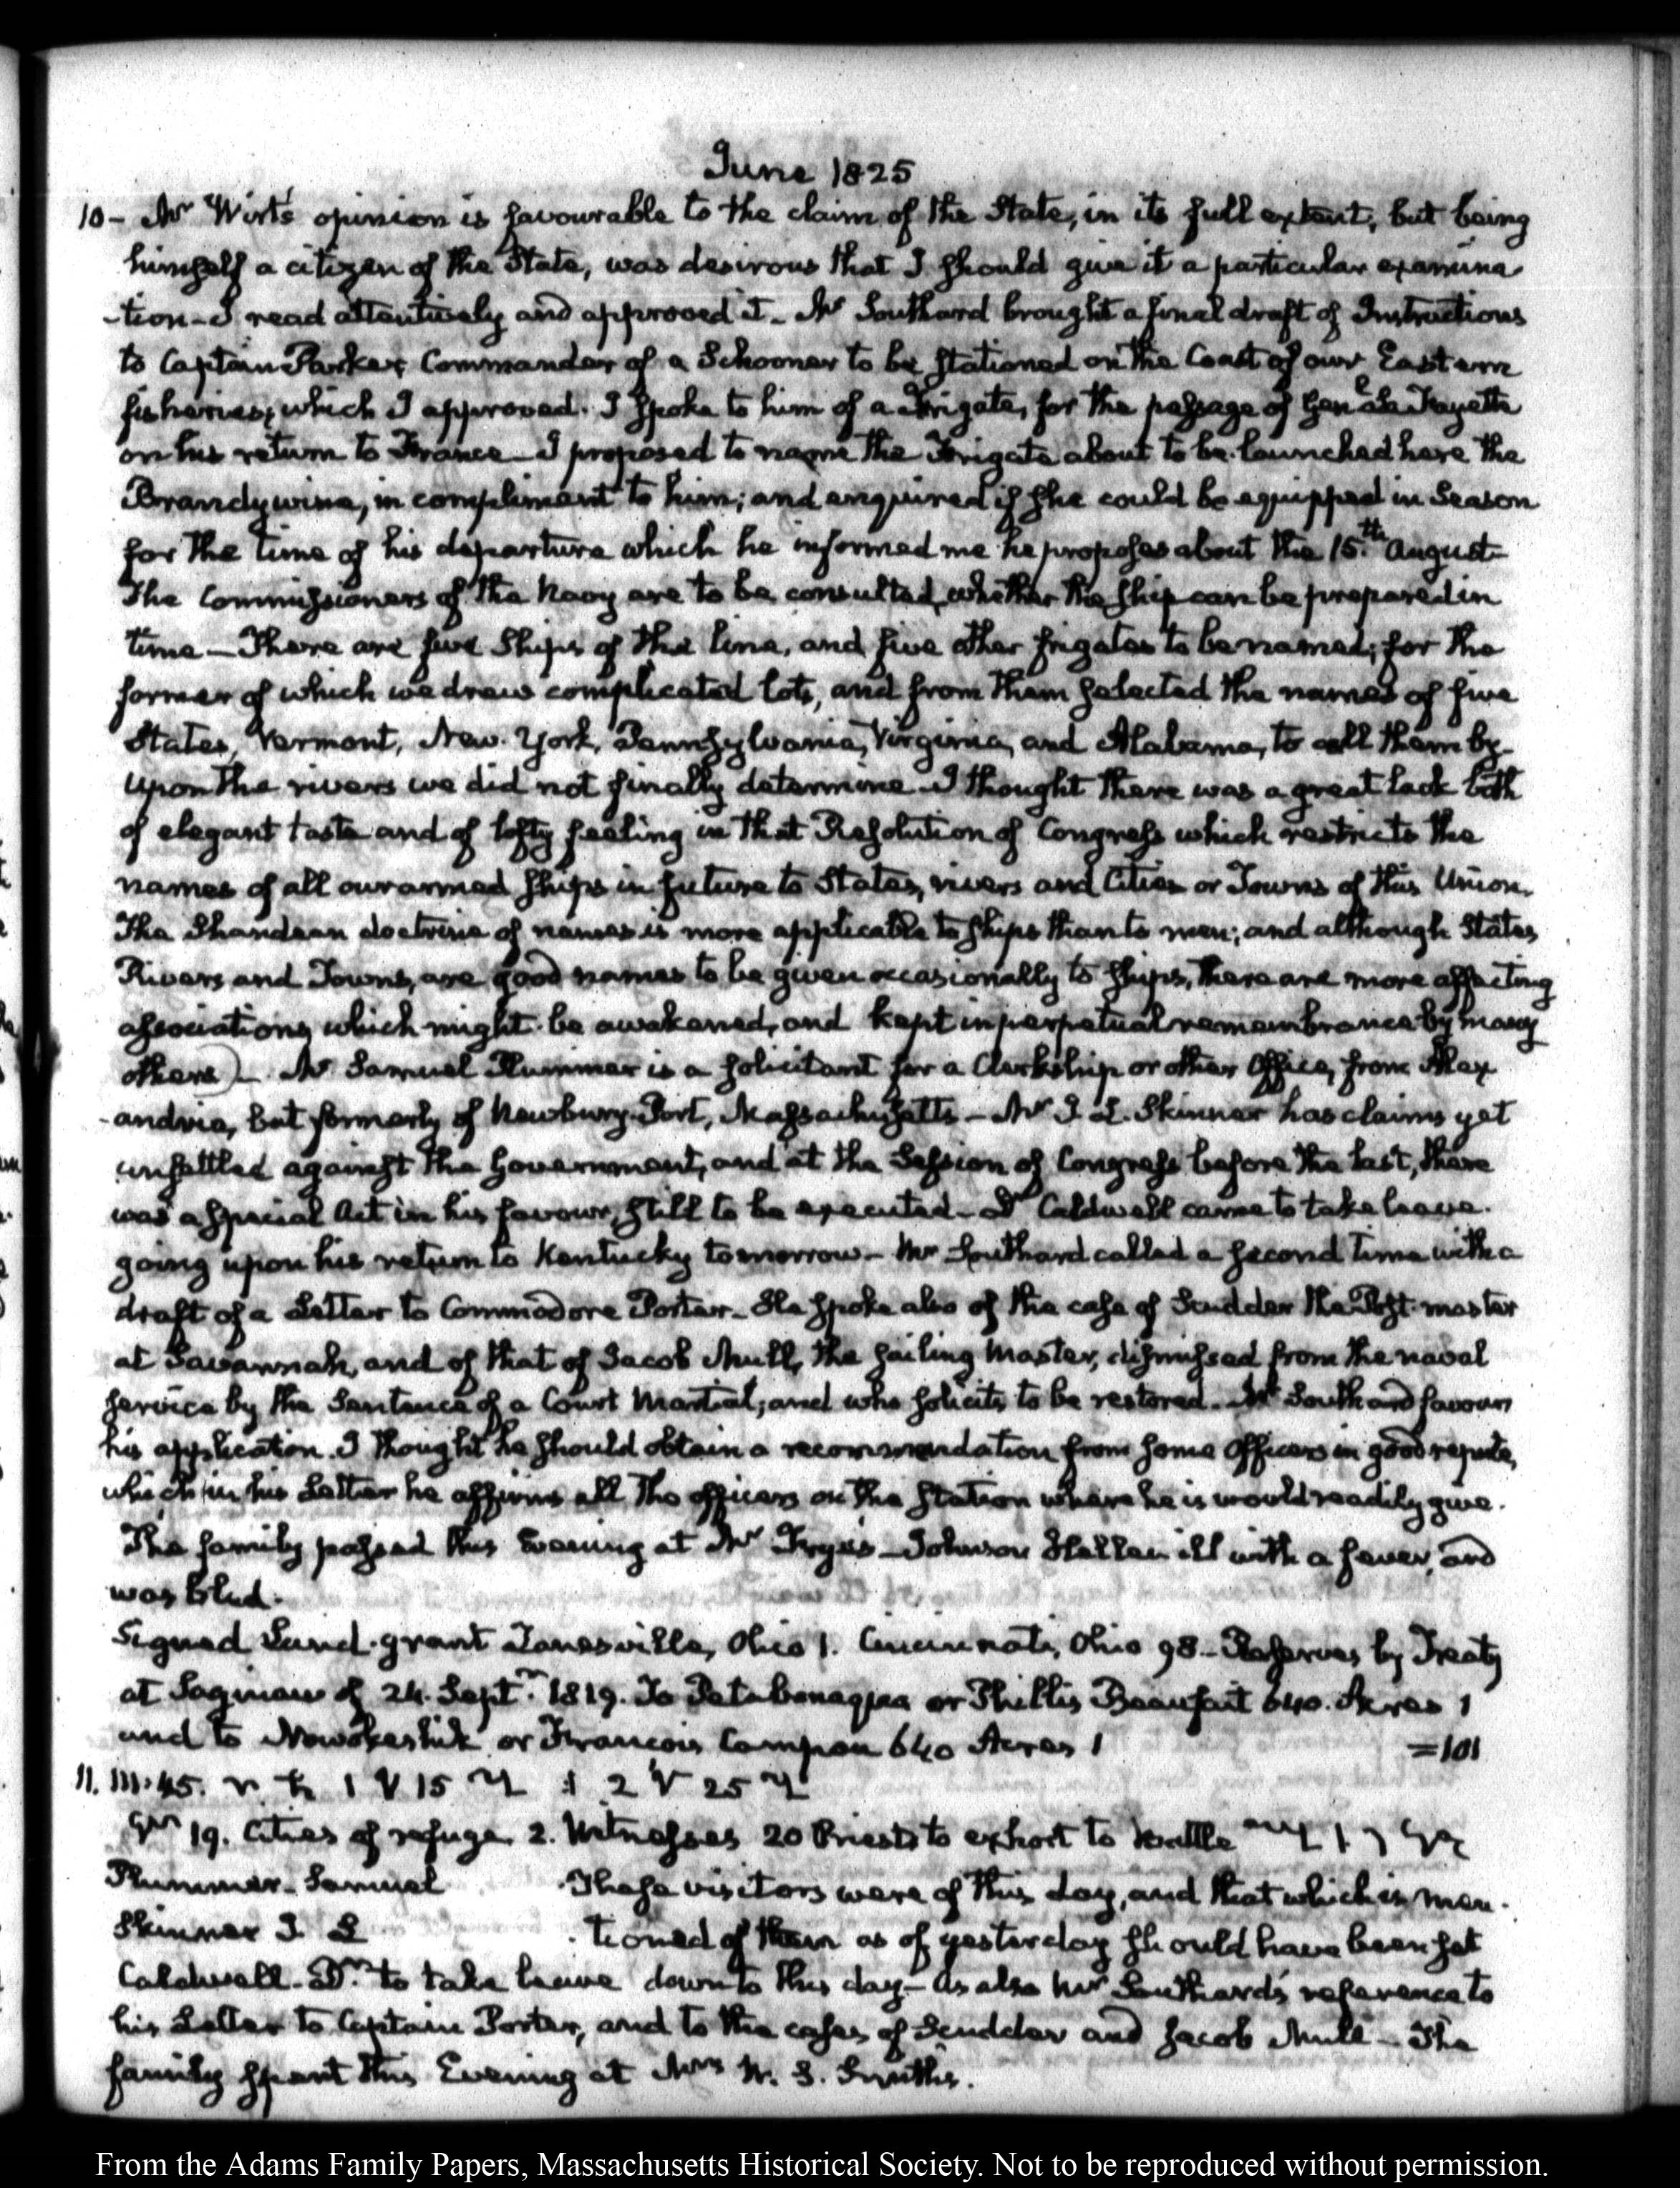 June 1825
10- Mr Wirt's opinion is favourable to the claim of the State, in its full extent, but being
himself a citizen of the State, was desirous that I should give it a particular examina
-tion- I read attentively and approved it- Mr Southard brought a final draft of Instructions
to Captain Parker Commander of a Schooner to be stationed on the Coast of our Eastern
fisheries; which I approved. I spoke to him of a Frigate, for the passage of Genl La Fayette
on his return to France- I proposed to name the Frigate about to be launched here the
Brandywine, in compliment to him; and enquired if she could be equipped in Season
for the time of his departure which he informed me he proposes about the 15.th August-
The Commissioners of the Navy are to be consulted, whether the ship can be prepared in
time- There are five Ships of the line, and five other frigates to be named; for the
former of which we drew complicated lots, and from them selected the names of five
States, Vermont, New-York, Pennsylvania, Virginia, and Alabama, to call them by-
Upon the rivers we did not finally determine- I thought there was a great lack both
of elegant taste and of lofty feeling in that Resolution of Congress which restricts the
names of all our armed ships in future to States, rivers and Cities or Towns of this Union.
The Shandean doctrine of names is more applicable to ships than to men; and although States
Rivers and Towns, are good names to be given occasionally to ships, there are more affecting
associations which might be awakened, and kept in perpetual remembrance by many
others)- Mr Samuel Plummer is a solicitant for a Clerkship or other Office, from Alex
-andria, but formerly of Newbury-Port, Massachusetts- Mr I. L. Skinner has claims yet
unsettled against the Government, and at the Session of Congress before the last, there
was a special Act in his favour, still to be executed- Dr Caldwell came to take leave.
going upon his return to Kentucky tomorrow- Mr Southard called a second time with a
draft of a Letter to Commodore Porter- He spoke also of the case of Scudder the Post-master
at Savannah, and of that of Jacob Mull, the sailing Master, dismissed from the naval
service by the Sentence of a Court Martial; and who solicits to be restored. Mr Southard favours
his application. I thought he should obtain a recommendation from some Officers in good repute,
which in his Letter he affirms all the officers on the Station where he is would readily give.
The family passed this Evening at Mr Frye's- Johnson Hellen ill with a fever, and
was bled.
Signed Land-grant Zanesville, Ohio 1. Cincinnati, Ohio 98- Reserves by Treaty
at Saginaw of 24. Septr. 1819. To Petabonaqua or Phillis Beaufait 640. Acres 1
and to Nowokeshik or Francois Campau 640 Acres 1 =101
11. III:45.
19. Cities of refuge. 2. Witnesses 20 Priests to exhort to battle
Plummer- Samuel These visitors were of this day, and that which is men-
Skinner I. L -tioned of them as of yesterday should have been set
Caldwell- Dr. to take leave down to this day- As also Mr Southard's reference to
his Letter to Captain Porter, and to the cases of Scudder and Jacob Mull- The
family spent this Evening at Mrs W. S. Smith's.
From the Adams Family Papers, Massachusetts Historical Society. Not to be reproduced without permission.